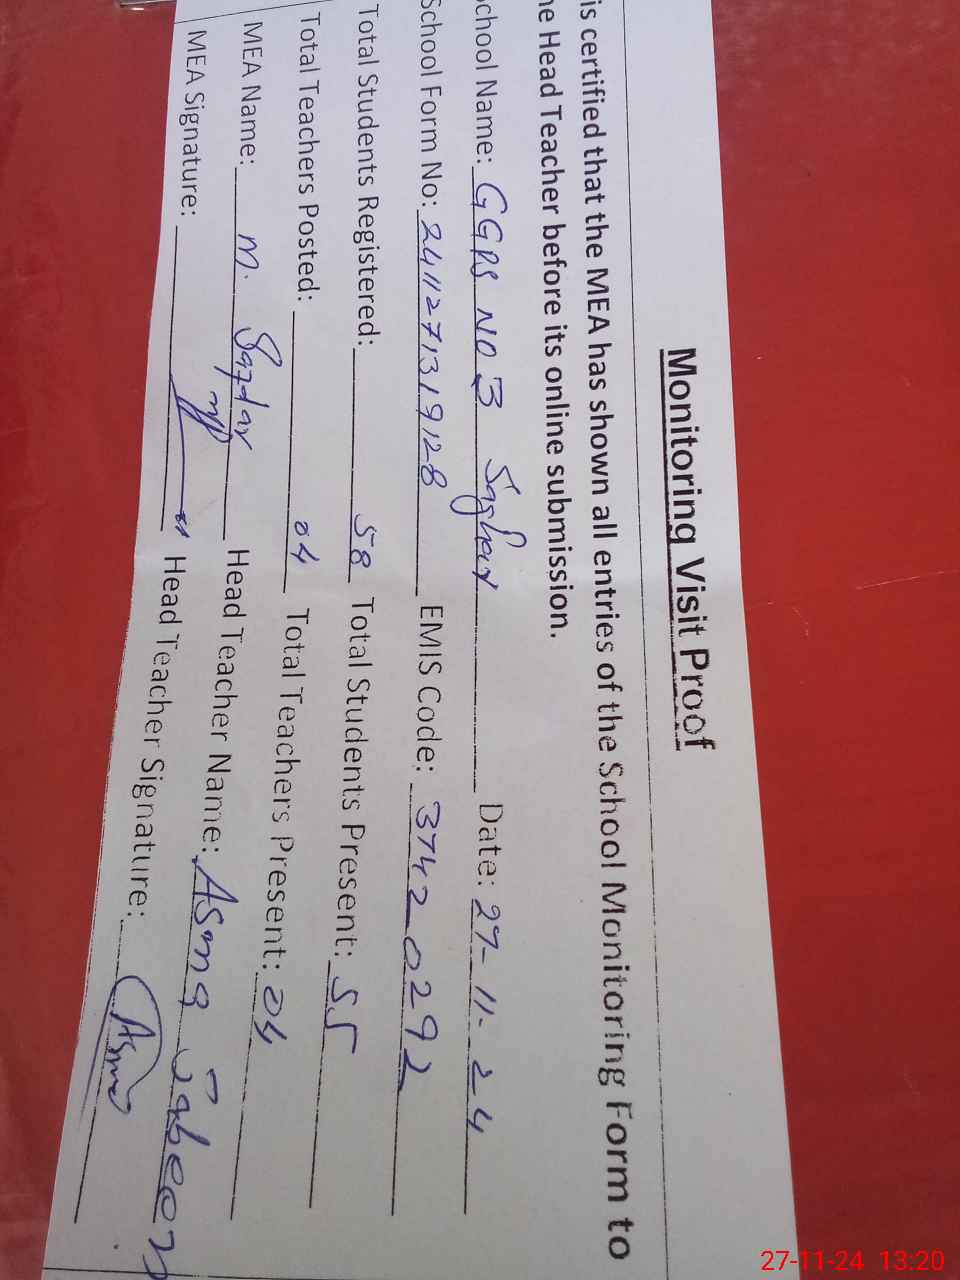 Monitoring Visit Proof
is certified that the MEA has shown all entries of the School Monitoring Form to
he Head Teacher before its online submission.
School Name: GGPS NO 3 Saghar Date: 27-11-24
School Form No: 2411271319128 EMIS Code: 37420292
Total Students Registered: 58 Total Students Present: 55
Total Teachers Posted: 04 Total Teachers Present: 04
MEA Name: M. Safdar Head Teacher Name: Asma Jabeen
MEA Signature: Head Teacher Signature: Asma
27-11-24 13:20